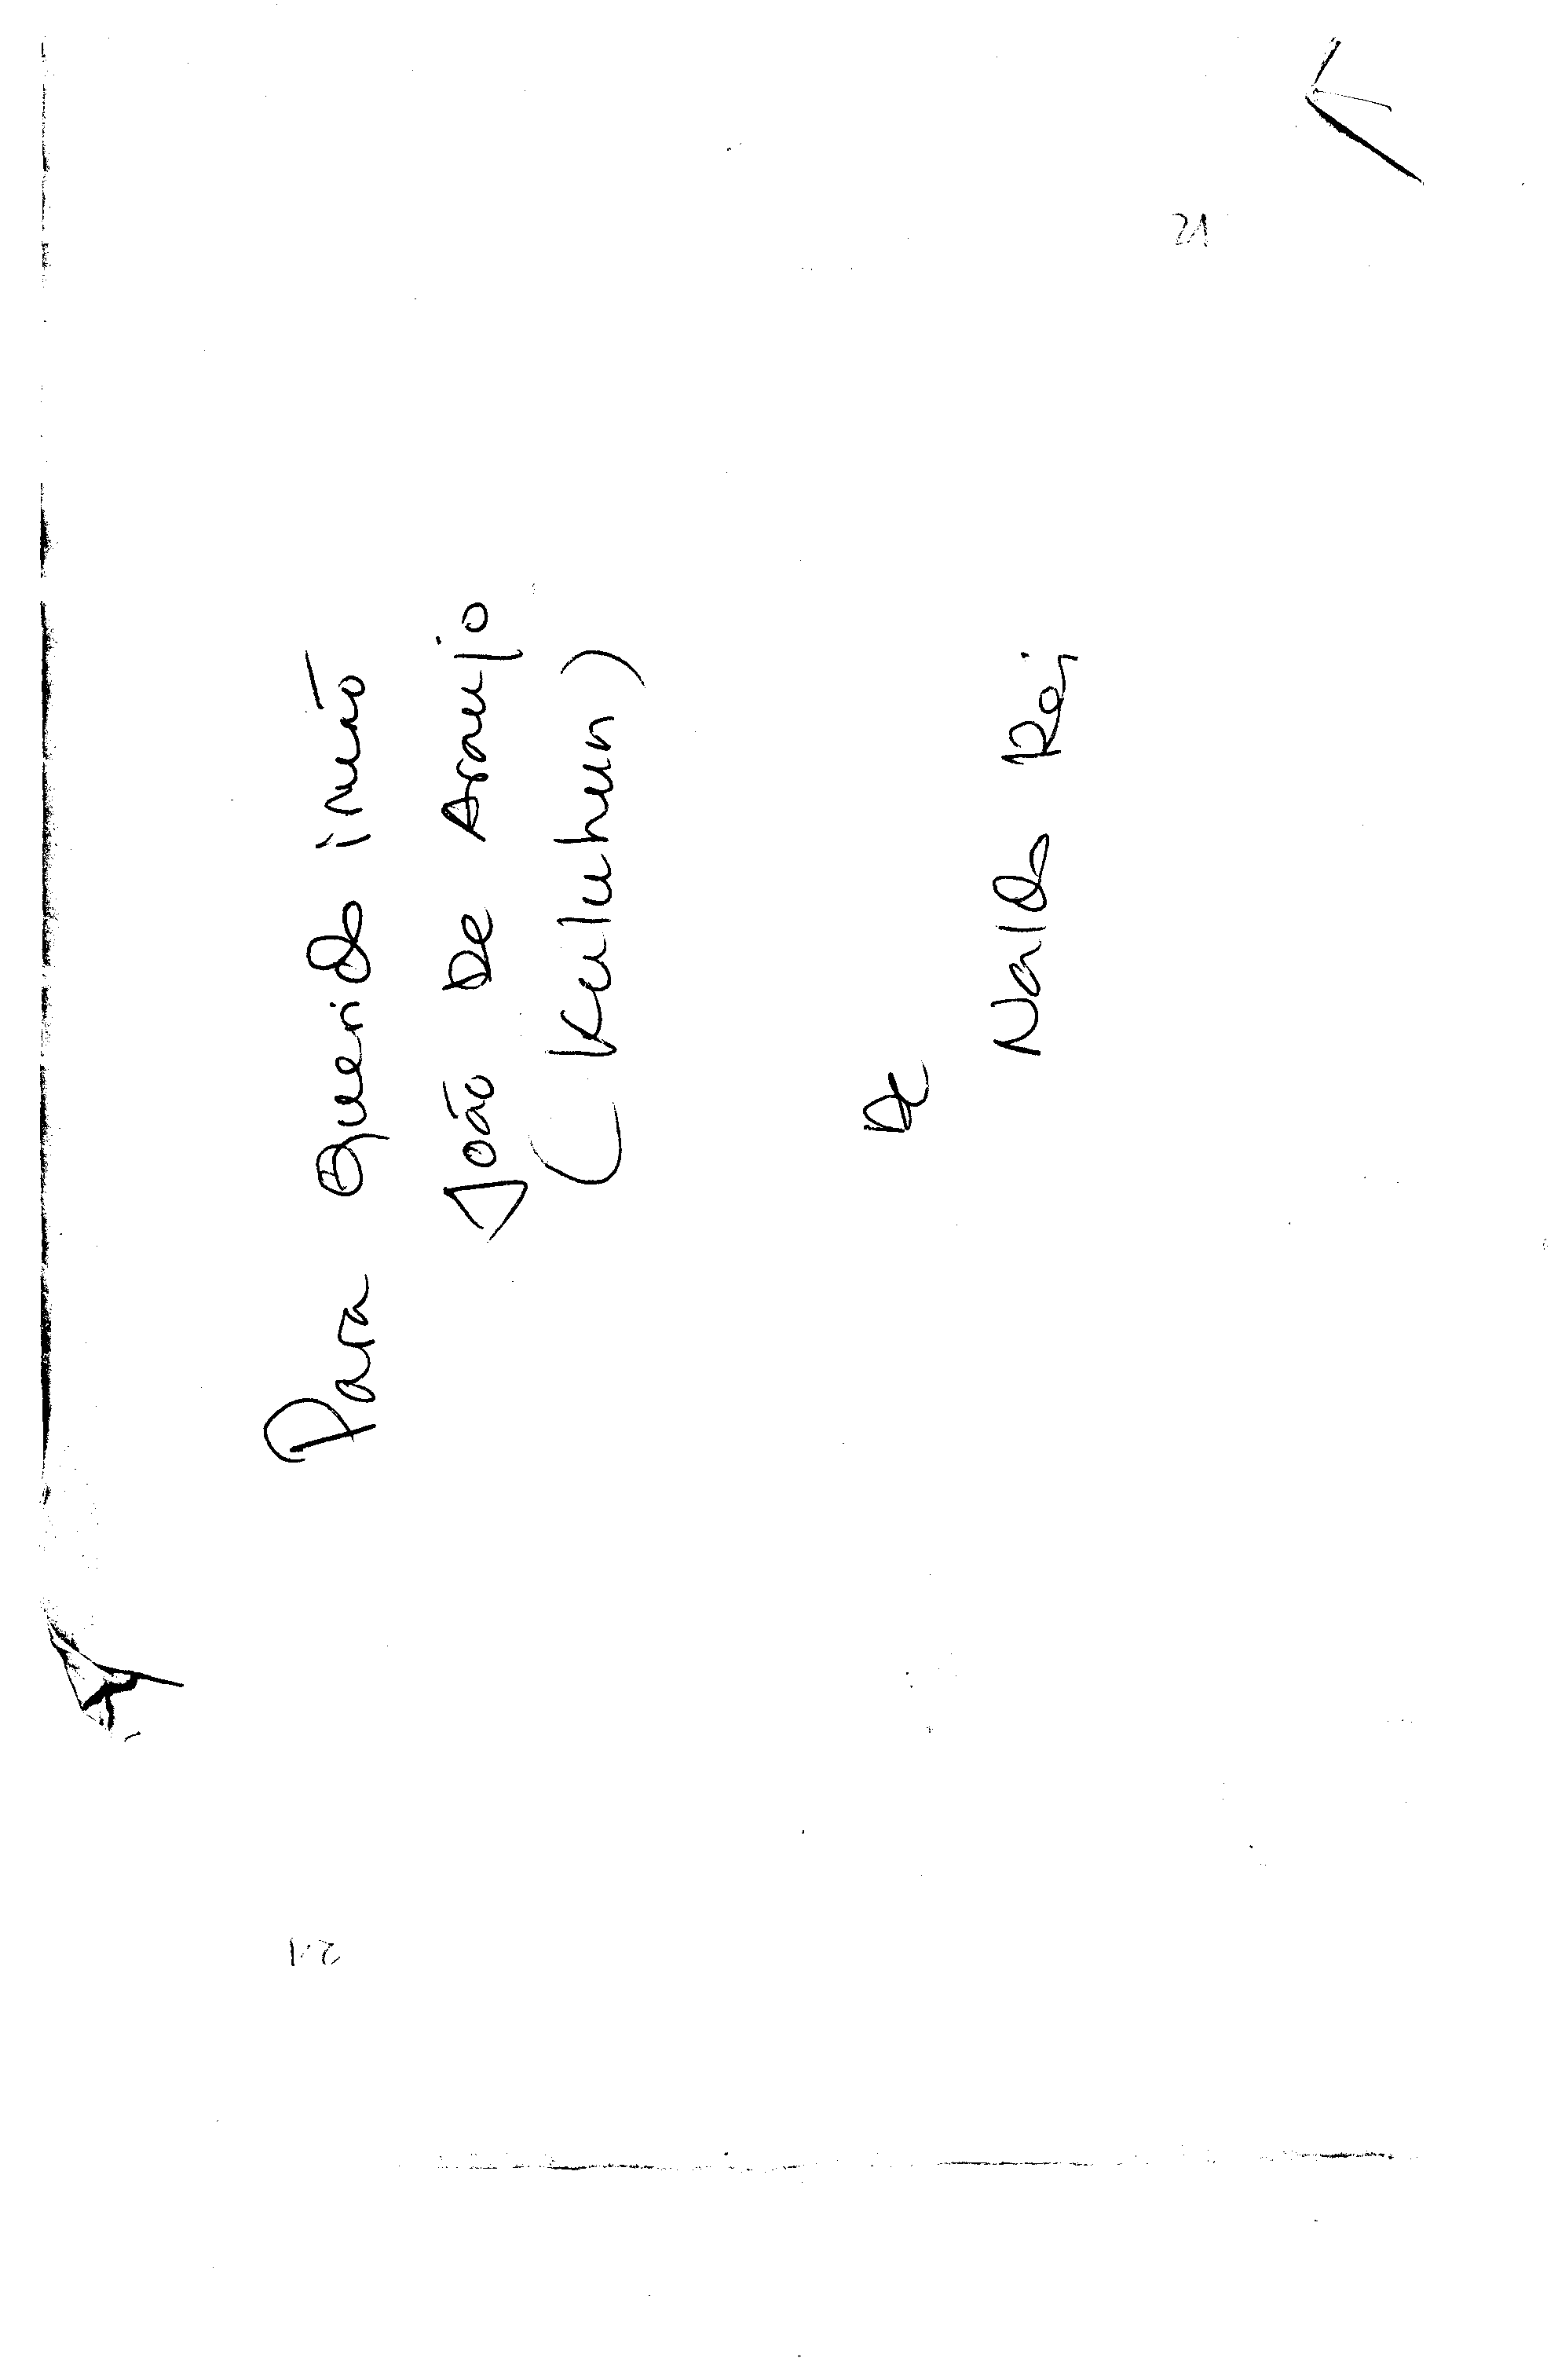 Para Querido irmão
João De Araujo
(Kuluhun)
De
Naldo Rei
21
21